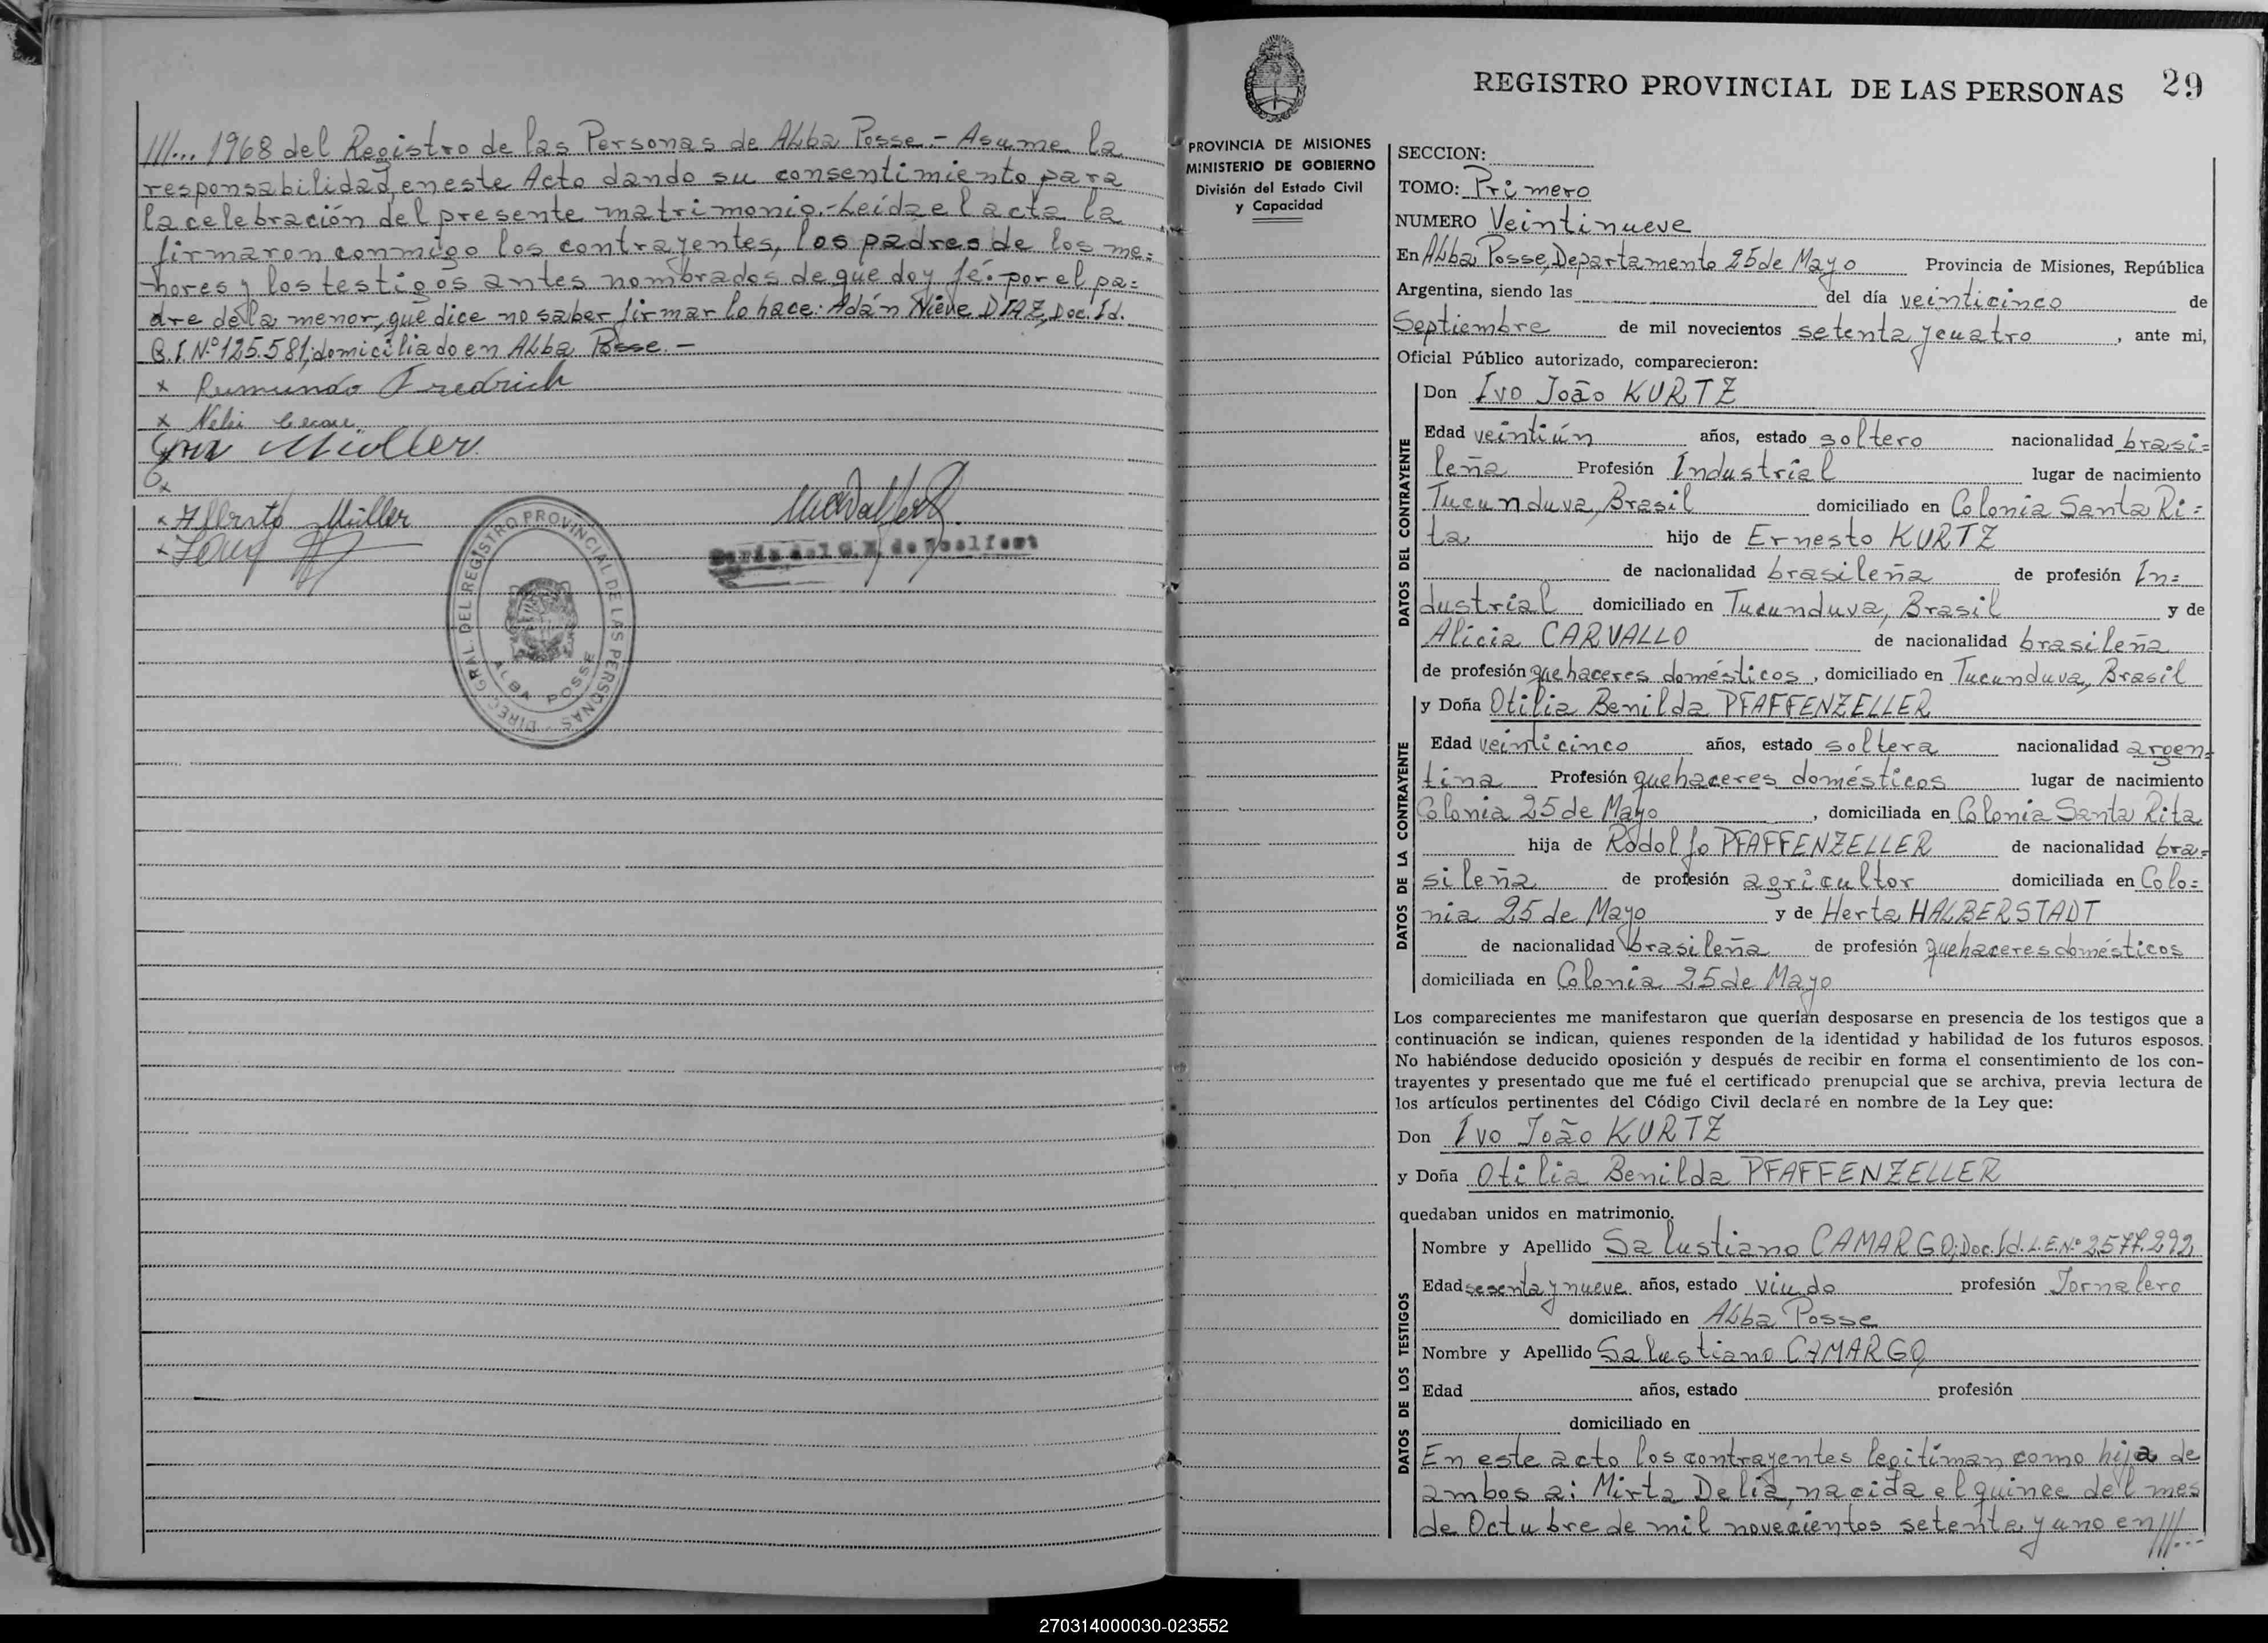 III... 1968 del Registro de las Personas de Alba Posse.- Asume la
responsabilidad en este Acto dando su consentimiento para
la celebración del presente matrimonio.- Leída el acta la
firmaron conmigo los contrayentes, los padres de los me=
nores y los testigos antes nombrados de que doy fé.- por el pa=
dre de la menor, que dice no saber firmar lo hace: Adán Nieve DIAZ, Doc. Id.
C.I. Nº 125.581, domiciliado en Alba Posse.-
x Rumundo Friedrich
x Nelsi
Müller
x
x Alberto Müller
x
DIREC. GRAL. DEL REGISTRO PROVINCIAL DE LAS PERSONAS
ALBA POSSE
REGISTRO PROVINCIAL DE LAS PERSONAS 29
PROVINCIA DE MISIONES
MINISTERIO DE GOBIERNO
División del Estado Civil
y Capacidad
SECCION:
TOMO: Primero
NUMERO Veintinueve
En Alba Posse, Departamento 25 de Mayo Provincia de Misiones, República
Argentina, siendo las del día veinticinco de
Septiembre de mil novecientos setenta y cuatro, ante mi,
Oficial Público autorizado, comparecieron:
DATOS DEL CONTRAYENTE
Don Ivo João KURTZ
Edad veintiún años, estado soltero nacionalidad brasi=
leña Profesión Industrial lugar de nacimiento
Tucunduva, Brasil domiciliado en Colonia Santa Ri=
ta hijo de Ernesto KURTZ
de nacionalidad brasileña de profesión In=
dustrial domiciliado en Tucunduva, Brasil y de
Alicia CARVALLO de nacionalidad brasileña
de profesión quehaceres domésticos, domiciliado en Tucunduva, Brasil
y Doña Otilia Benilda PFAFFENZELLER
DATOS DE LA CONTRAYENTE
Edad veinticinco años, estado soltera nacionalidad argen=
tina Profesión quehaceres domésticos lugar de nacimiento
Colonia 25 de Mayo, domiciliada en Colonia Santa Rita
hija de Rodolfo PFAFFENZELLER de nacionalidad bra=
sileña de profesión agricultor domiciliada en Colo=
nia 25 de Mayo y de Herta HALBERSTADT
de nacionalidad brasileña de profesión quehaceres domésticos
domiciliada en Colonia 25 de Mayo
Los comparecientes me manifestaron que querían desposarse en presencia de los testigos que a
continuación se indican, quienes responden de la identidad y habilidad de los futuros esposos.
No habiéndose deducido oposición y después de recibir en forma el consentimiento de los con-
trayentes y presentado que me fué el certificado prenupcial que se archiva, previa lectura de
los artículos pertinentes del Código Civil declaré en nombre de la Ley que:
Don Ivo João KURTZ
y Doña Otilia Benilda PFAFFENZELLER
quedaban unidos en matrimonio.
DATOS DE LOS TESTIGOS
Nombre y Apellido Salustiano CAMARGO; Doc. Id. L.E. Nº 2.577.292
Edad sesenta y nueve años, estado viudo profesión Jornalero
domiciliado en Alba Posse
Nombre y Apellido Salustiano CAMARGO
Edad años, estado profesión
domiciliado en
En este acto los contrayentes legitiman como hija de
ambos a: Mirta Delia, nacida el quince del mes
de Octubre de mil novecientos setenta y uno en ///...
270314000030-023552